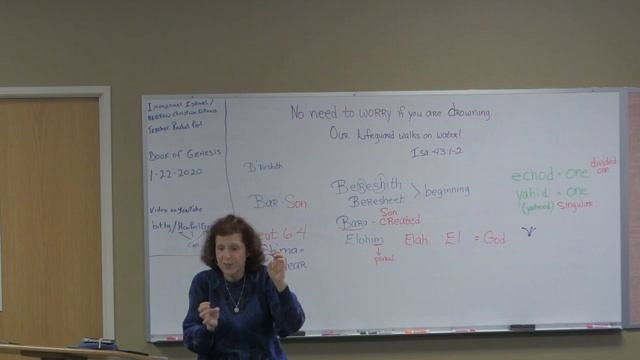 Immanuel Israel/
Hebrew Christian
Teacher: Rachel
Book of Genesis
1-22-2020
Video on YouTube
bit.ly/
No need to worry if you are drowning
Our Lifeguard walks on water!
Isa. 43:1-2
B'Reshith
Bar - Son
Deut 6:4
Shma =
hear
BeReshith
Beresheet
> beginning
Son
Bara - created
Elohim Elah El = God
plural
echod - one
divided
one
yahid - one
(yaheed) singular